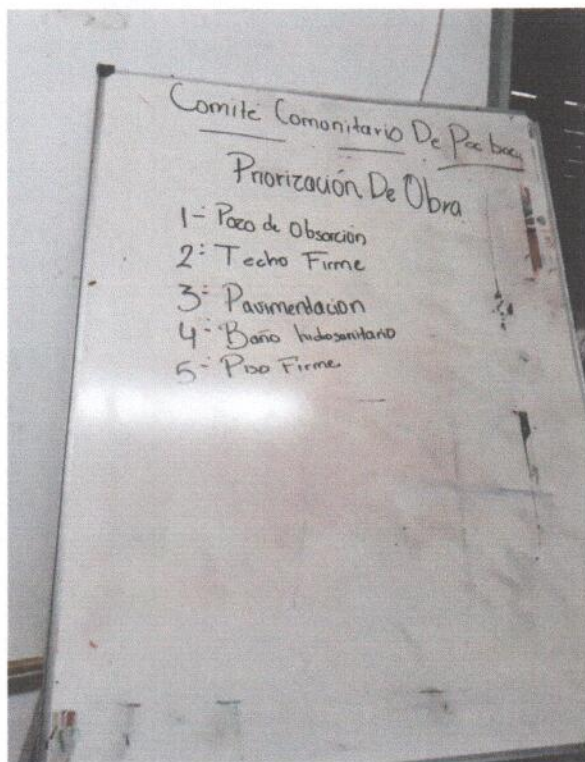 Comité Comonitario De Pocboc
Priorización De Obra
1- Pozo de Obsorción
2- Techo Firme
3- Pavimentacion
4- Baño hidosanitario
5- Piso Firme